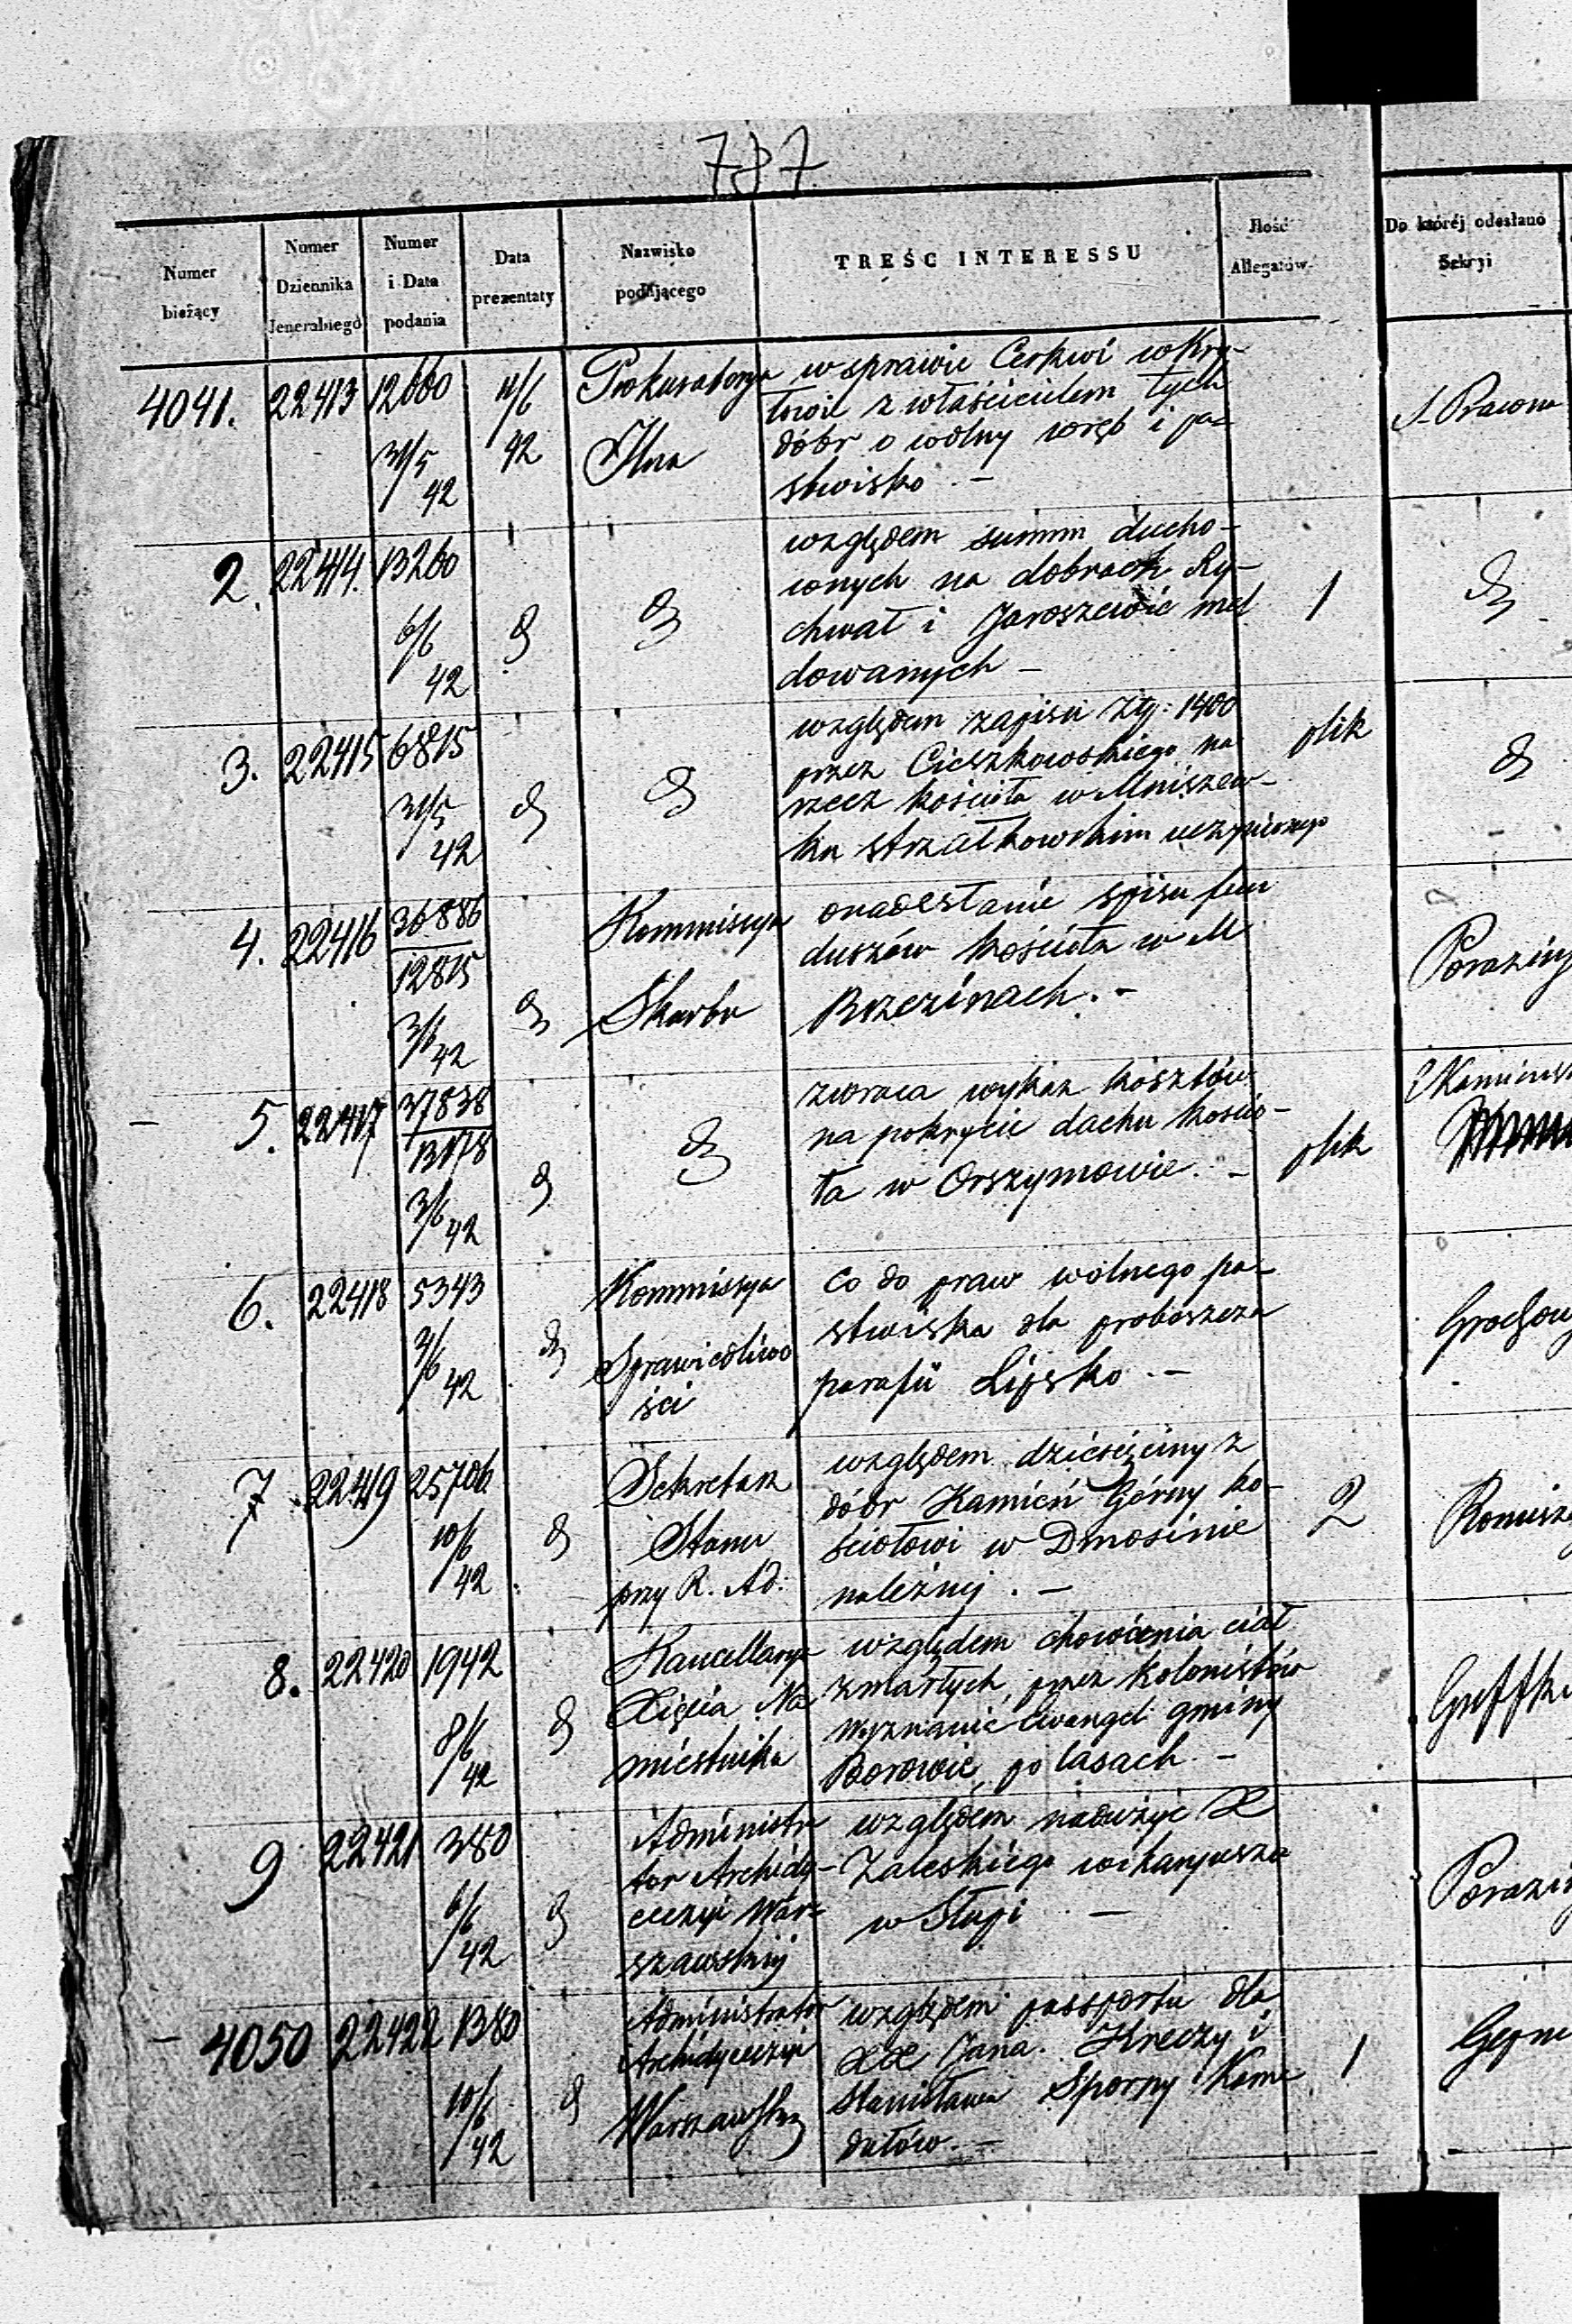 787
Numer bieżący
Numer Dziennika Jeneralnego
Numer i Data podania
Data prezentaty
Nazwisko podającego
TREŚC INTERESSU
Ilość Allegatów
Do której odesłano Sekcyi
4041. 22413 12660 31/5 42 11/6 42
Prokuratorya
w sprawie Cerkwi w Kry-
łowie z właścicielem tych
dóbr o wolny wręb i pa-
stwisko. -
2. 22414. 13260 6/6 42 d d
względem summ ducho-
wnych na dobrach Ry-
chwał i Jaroszewic mel
dowanych -
1
d
3. 22415 6815 31/5 42 d d
względem zapisu Złp: 1400
przez Cieszkowskiego na
rzecz kościoła w Mniszew-
ku strzałkowskim
plik
d
4. 22416 36886 12815 3/6 42 d
Kommissya
Skarbu
o nadesłanie spisu fun
duszów kościoła w M
Brzezinach. -
5. 22417 37838 13178 3/6 42 d d
zwraca wykaz kosztów
na pokrycie dachu kościo-
ła w Orszymowie. -
plik
6. 22418 5343 2/6 42 d
Kommissya
Sprawiedliwo
ści
co do praw wolnego pa-
stwiska dla proboszcza
parafii Lipsko. -
7 22419 25706 10/6 42 d
Sekretarz
Stanu
przy R. Ad:
względem dziesięciny z
dóbr Kamień Górny ko-
ściołowi w Dmosinie
należnej. -
2
8. 22420 1942 8/6 42 d
Kancellarya
Xięcia Na
miestnika
względem chowania ciał
zmarłych przez kolonistów
Wyznanie Ewangel: gminy
Borowie po lasach. -
9 22421 380 6/6 42 d
Administra
tor Archidy-
ecezyi War-
szawskiej
względem nadużyć X
Zaleskiego wikaryusza
w Słupi -
4050 22422 1380 10/6 42 d
Administrator
Archidyecezyi
Warszawskiej
względem passportu dla
XX Jana. Hreczy i
Stanisława Sporny Kame
dułów. -
1